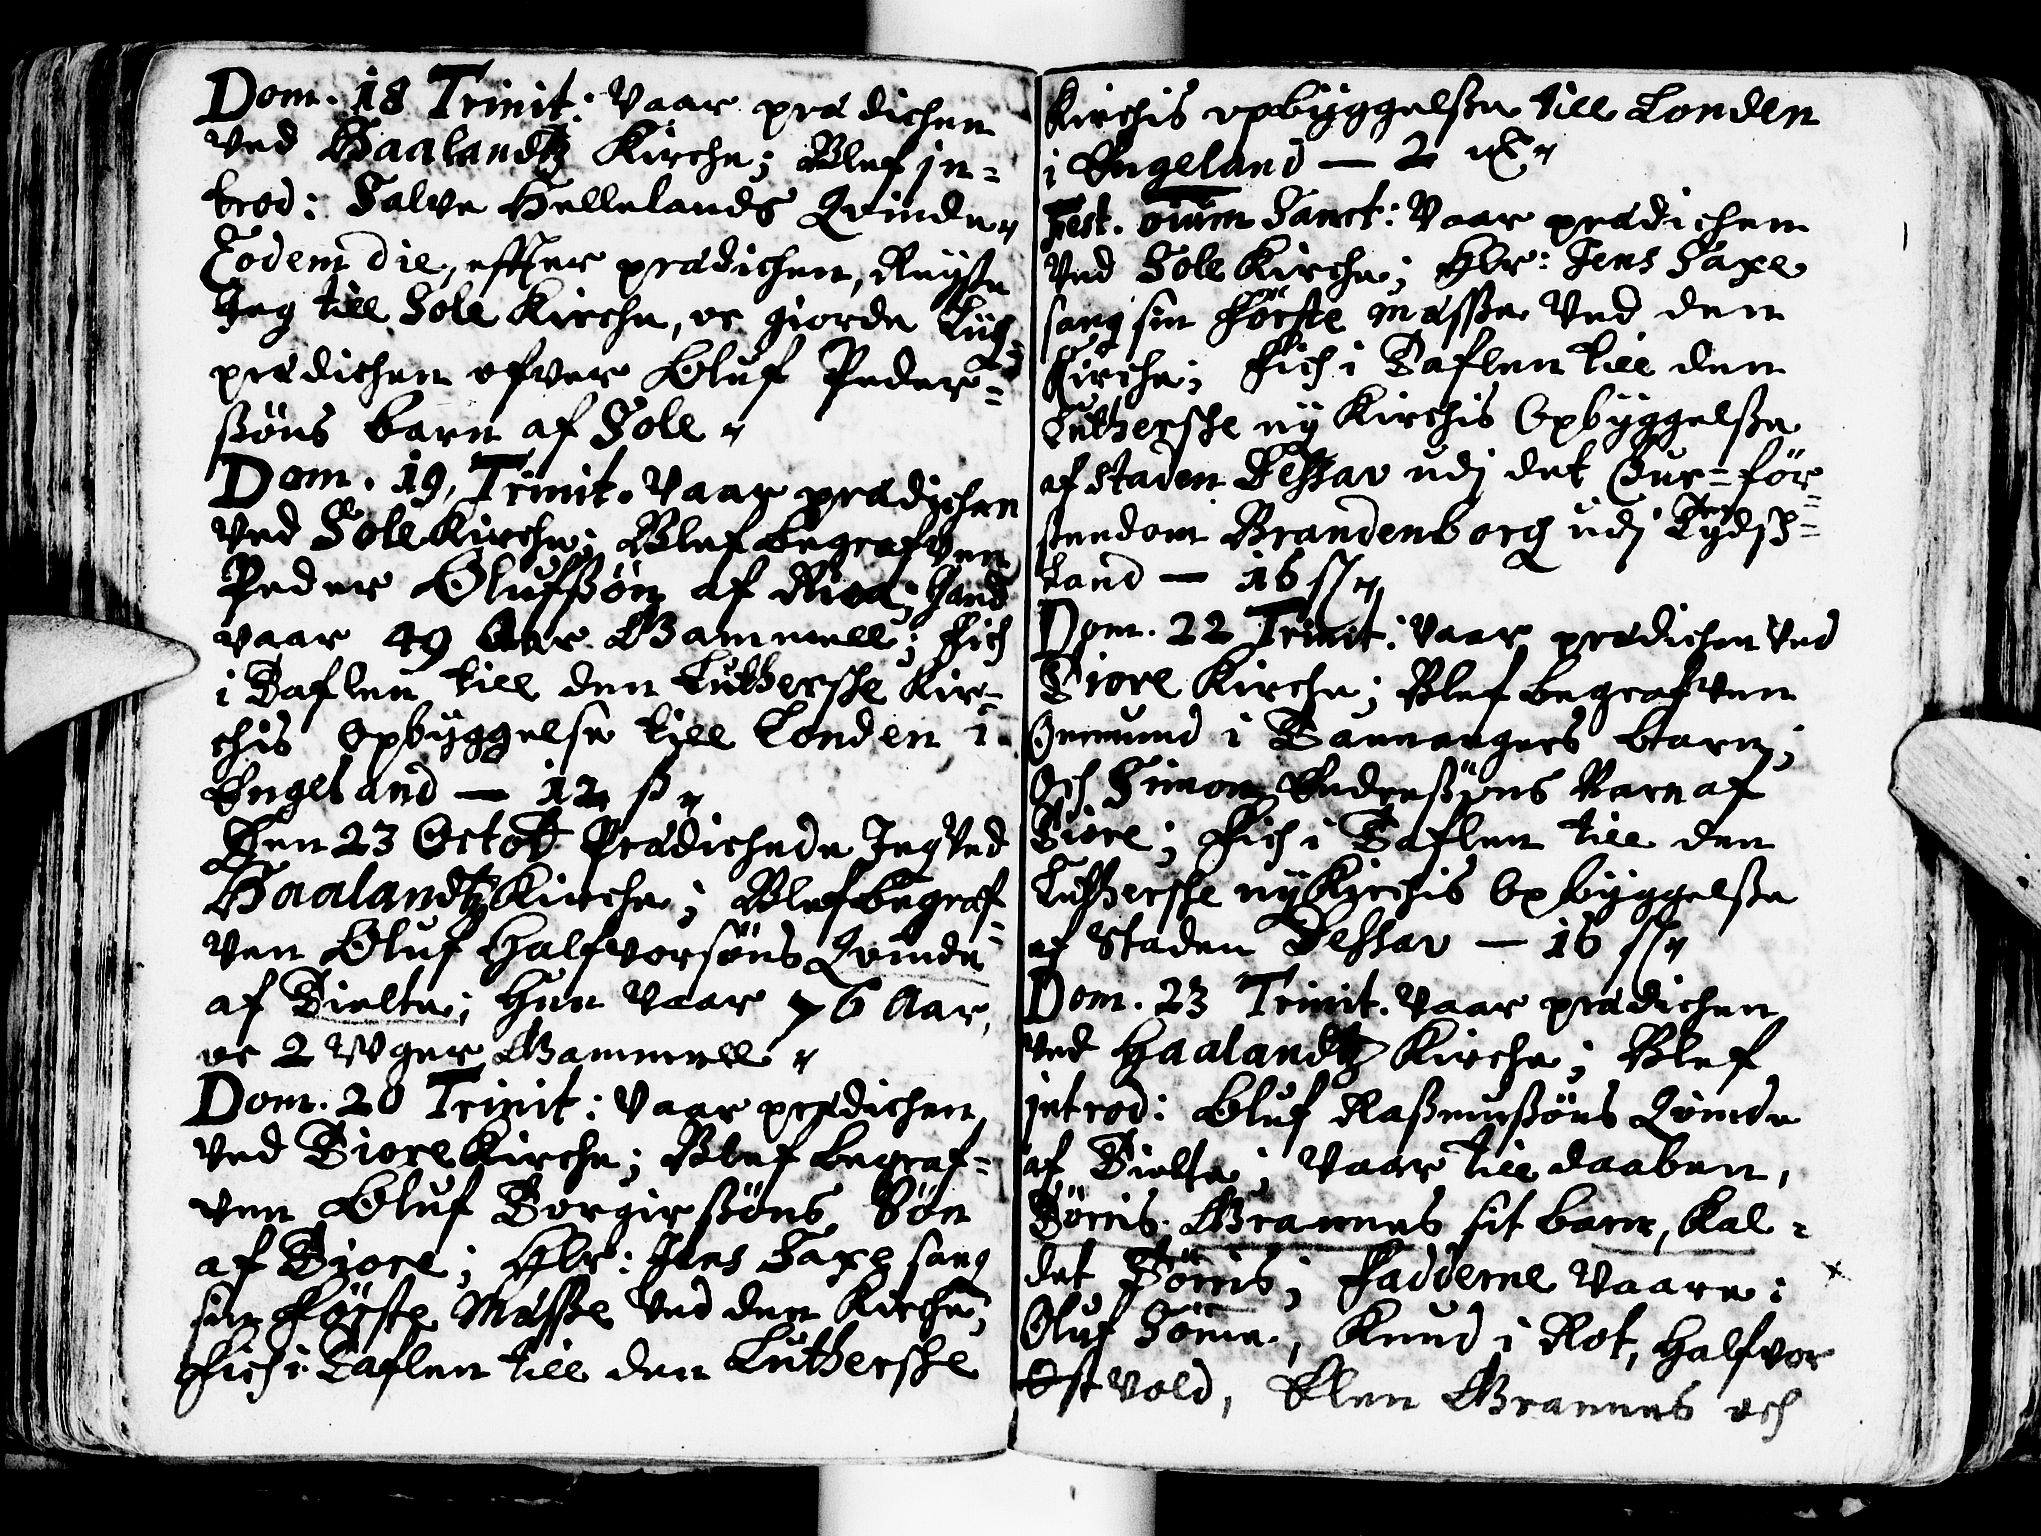 Dom. 18 Trinit: Vaar prædichen
ved Haalandtz Kirche; Blef in-
trod: Salve Hellelands Qvinde
Eodem die, effter prædichen, Reyste
Jeg till Sole Kirche, oc giorde Liig
prædichen ofver Oluf Peder-
ssöns barn af Sole
Dom. 19, Trinit. Vaar prædichen
ved Sole Kirche; Blef begrafven
Peder Olufssön af Risa; hand
vaar 49 Aar Gammell; fich
i Taflen till den Lutherske Kir-
chis opbyggelse till Londen i
Engeland — 12 ß
Den 23 Octob Prædichede Jeg ved
Haalandtz Kirche; Blef begraf-
ven Oluf Halfvorsöns Qvinde
af Tielte; Hun vaar 76 Aar,
oc 2 Uger Gammell
Dom. 20 Trinit: Vaar prædichen
ved Tiore Kirche; Blef begraf-
ven Oluf Borgirssöns Sön
af Tiore; Hbr: Jens Saxe sang
sin förste Mæsse ved den Kirche;
fich i Taflen till den Lutherske
Kirchis opbyggelsse till Londen
i Engeland — 2
Fest. oium Sanct: Vaar prædichen
ved Sole Kirche; Hbr: Jens Saxe
sang sin förste mæsse ved den
Kirche; fich i Taflen till den
Lutherske ny Kirchis Opbyggelsse
af staden Dessav udj det Chur-för-
stendom Brandenborg udj Tydsk-
land — 16
Dom. 22 Trinit: Vaar prædichen ved
Tiore Kirche; Blef begrafven
Omund i Tananger barn;
Och Simon Endressöns Barn af
Tiore; fich i Taflen till den
Lutherske ny Kirchis Opbyggelsse
af Staden Dessav — 16
Dom. 23 Trinit. Vaar prædichen
ved Haalandtz Kirche; Blef
introd: Oluf Rassmussöns Qvinde
af Tielte; Vaar till daaben,
Törris Grannes sit barn, Kal-
det Törris; Fadderne vaare:
Oluf Sömme, Knud i Rot, Halfvor
Østvold, Elen Grannes och